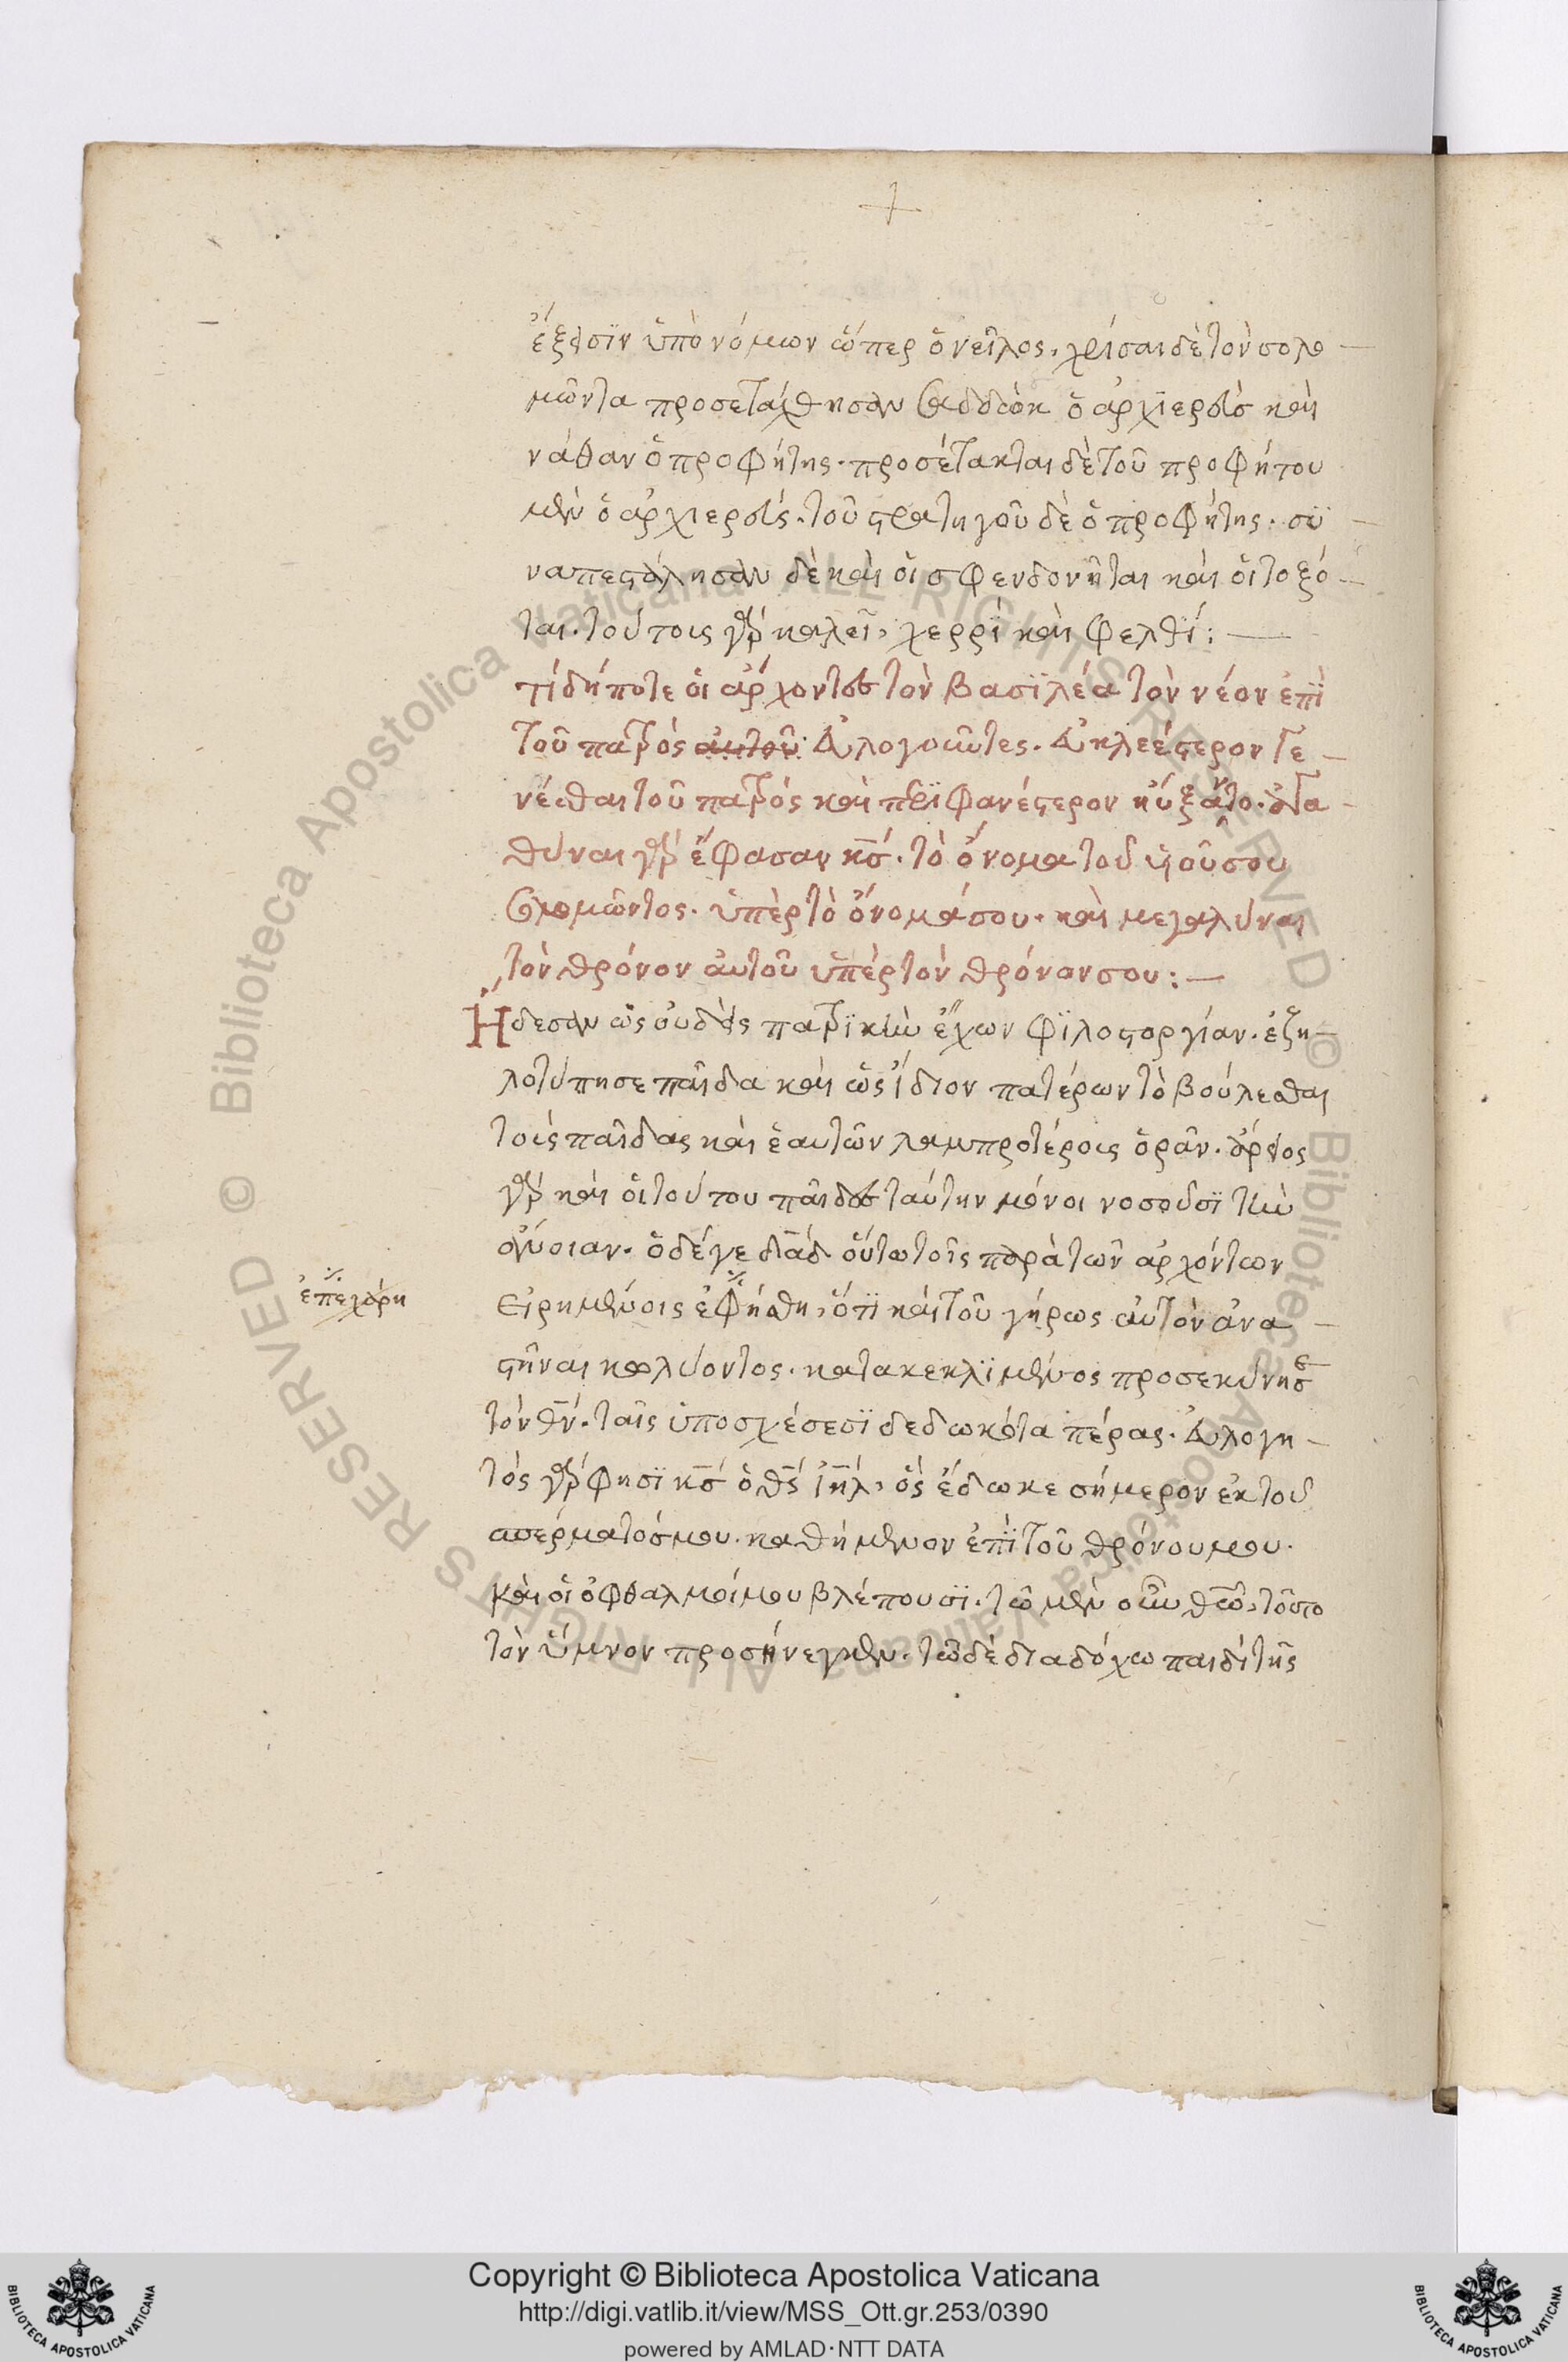 ἔξεισϊν ὑπὸ νόμων ὥσπερ ὁ νεῖλος. χρίσαι δὲ τὸν σολο
μῶντα προσετάχθησαν σαδδὼκ ὁ ἀρχϊερεὺς καὶ
νάθαν ὁ προφήτης. προσέτακται δὲ τοῦ προφήτου
μὲν ὁ ἀρχιερεὺς. τοῦ στρατηγοῦ δὲ ὁ προφήτης. συ
ναπεστάλησαν δὲ καὶ οἱ σφενδονῆται καὶ οἱ τοξό
ται. τούτους γὰρ καλεῖ, χερρϊ καὶ φελθί:
τί δήποτε οἱ ἄρχοντες τὸν βασϊλέα τὸν νέον ἐπὶ
τοῦ πατρὸς αὐτοῦ εὐλογοῦντες. εὐκλεέστερον γε
νέσθαι τοῦ πατρὸς καὶ περϊφανέστερον ηὔξαντο. ἀγα
θύναι γὰρ ἔφασαν κ̅ς̅. τὸ ὄνομα τοῦ υἱοῦ σου
σολομῶντος. ὑπὲρ τὸ ὄνομά σου. καὶ μεγαλύναι
τὸν θρόνον αὐτοῦ ὑπὲρ τὸν θρόνον σου:
Ἤδεσαν ὡς οὐδεὶς πατρϊκὴν ἔχων φϊλοστοργίαν. ἐζη
λοτύπησε παῖδα καὶ ὡς ἴδιον πατέρων τὸ βούλεσθαι
τοὺς παῖδας καὶ ἑαυτῶν λαμπροτέρους ὁρᾶν. ἄρειος
γὰρ καὶ οἱ τούτου παῖδες ταύτην μόνοι νοσοῦσϊ τὴν
ἄνοιαν. ὁ δέ γε δα̅δ̅ οὕτω τοῖς παρὰ τῶν ἀρχόντων
ἐπεχάρη
εἰρημένοις ἐφήσθη, ὅτϊ καὶ τοῦ γήρως αὐτὸν ἀνα
στῆναι κωλύοντος. κατακεκλϊμένος προσεκύνησε
τὸν θ̅ν̅. ταῖς ὑποσχέσεσϊ δεδωκότα πέρας. εὐλογη
τὸς γὰρ φησϊ κ̅ς̅ ὁ θ̅ς̅ ἰ̅η̅λ̅, ὃς ἔδωκε σήμερον ἐκ τοῦ
σπέρματός μου. καθήμενον ἐπϊ τοῦ θρόνου μου.
καὶ οἱ ὀφθαλμοί μου βλέπουσϊ. τῶ μὲν οὖν θ̅ω̅, τοῦτο
τὸν ὕμνον προσήνεγκεν. τῶ δὲ διαδόχω παιδὶ τῆς
Copyright © Biblioteca Apostolica Vaticana
http://digi.vatlib.it/view/MSS_Ott.gr.253/0390
powered by AMLAD·NTT DATA
BIBLIOTECA APOSTOLICA VATICANA
BIBLIOTECA APOSTOLICA VATICANA
© Biblioteca Apostolica Vaticana ALL RIGHTS RESERVED
© Biblioteca Apostolica Vaticana ALL RIGHTS RESERVED